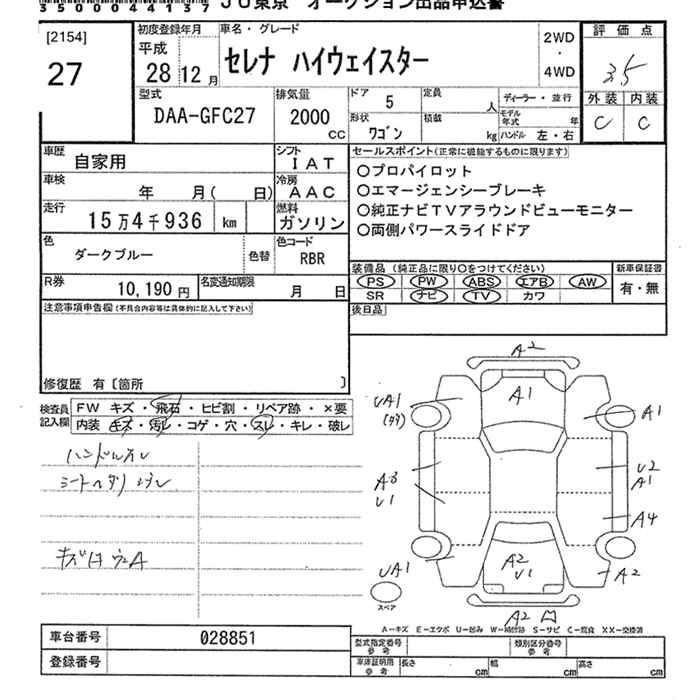 35000044137 JU東京 オークション出品申込書
[2154]
27
初度登録年月
平成
28 12 月
車名・グレード
セレナ ハイウェイスター
2WD
・
4WD
評価点
3.5
外装 内装
C C
型式
DAA-GFC27
排気量
2000
CC
ドア
5
定員
人
形状
ワゴン
積載
kg
ディーラー・並行
モデル
年式 年
ハンドル 左・右
車歴
自家用
シフト
IAT
車検
年 月( 日)
冷房
AAC
走行
15万4千936 km
燃料
ガソリン
色
ダークブルー
色替
色コード
RBR
R券
10,190 円
名変通知期限
月 日
セールスポイント(正常に機能するものに限ります)
○プロパイロット
○エマージェンシーブレーキ
○純正ナビTVアラウンドビューモニター
○両側パワースライドドア
装備品(純正品に限り○をつけてください)
PS PW ABS エアB AW
SR ナビ TV カワ
新車保証書
有・無
後日品
注意事項申告欄(不具合内容等は具体的に記入して下さい)
修復歴 有〔箇所 〕
検査員
記入欄
FW キズ・飛石・ヒビ割・リペア跡・×要
内装 キズ・汚レ・コゲ・穴・スレ・キレ・破レ
ハンドルスレ
キズ
A2
A1
UA1
A1
A3
U1
U2
A1
A4
UA1
A2
U1
A2
A2
スペア
A-キズ E-エクボ U-凹み W-補修跡 S-サビ C-腐食 XX-交換済
車台番号 028851
登録番号
型式指定番号
参考
類別区分番号
参考
車庫証明用
参考
長さ cm
幅 cm
高さ cm